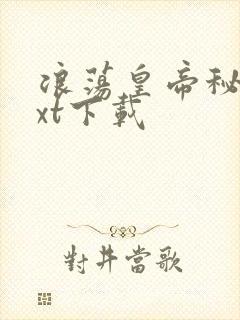 浪荡皇帝秘
xt下載
對井當歌